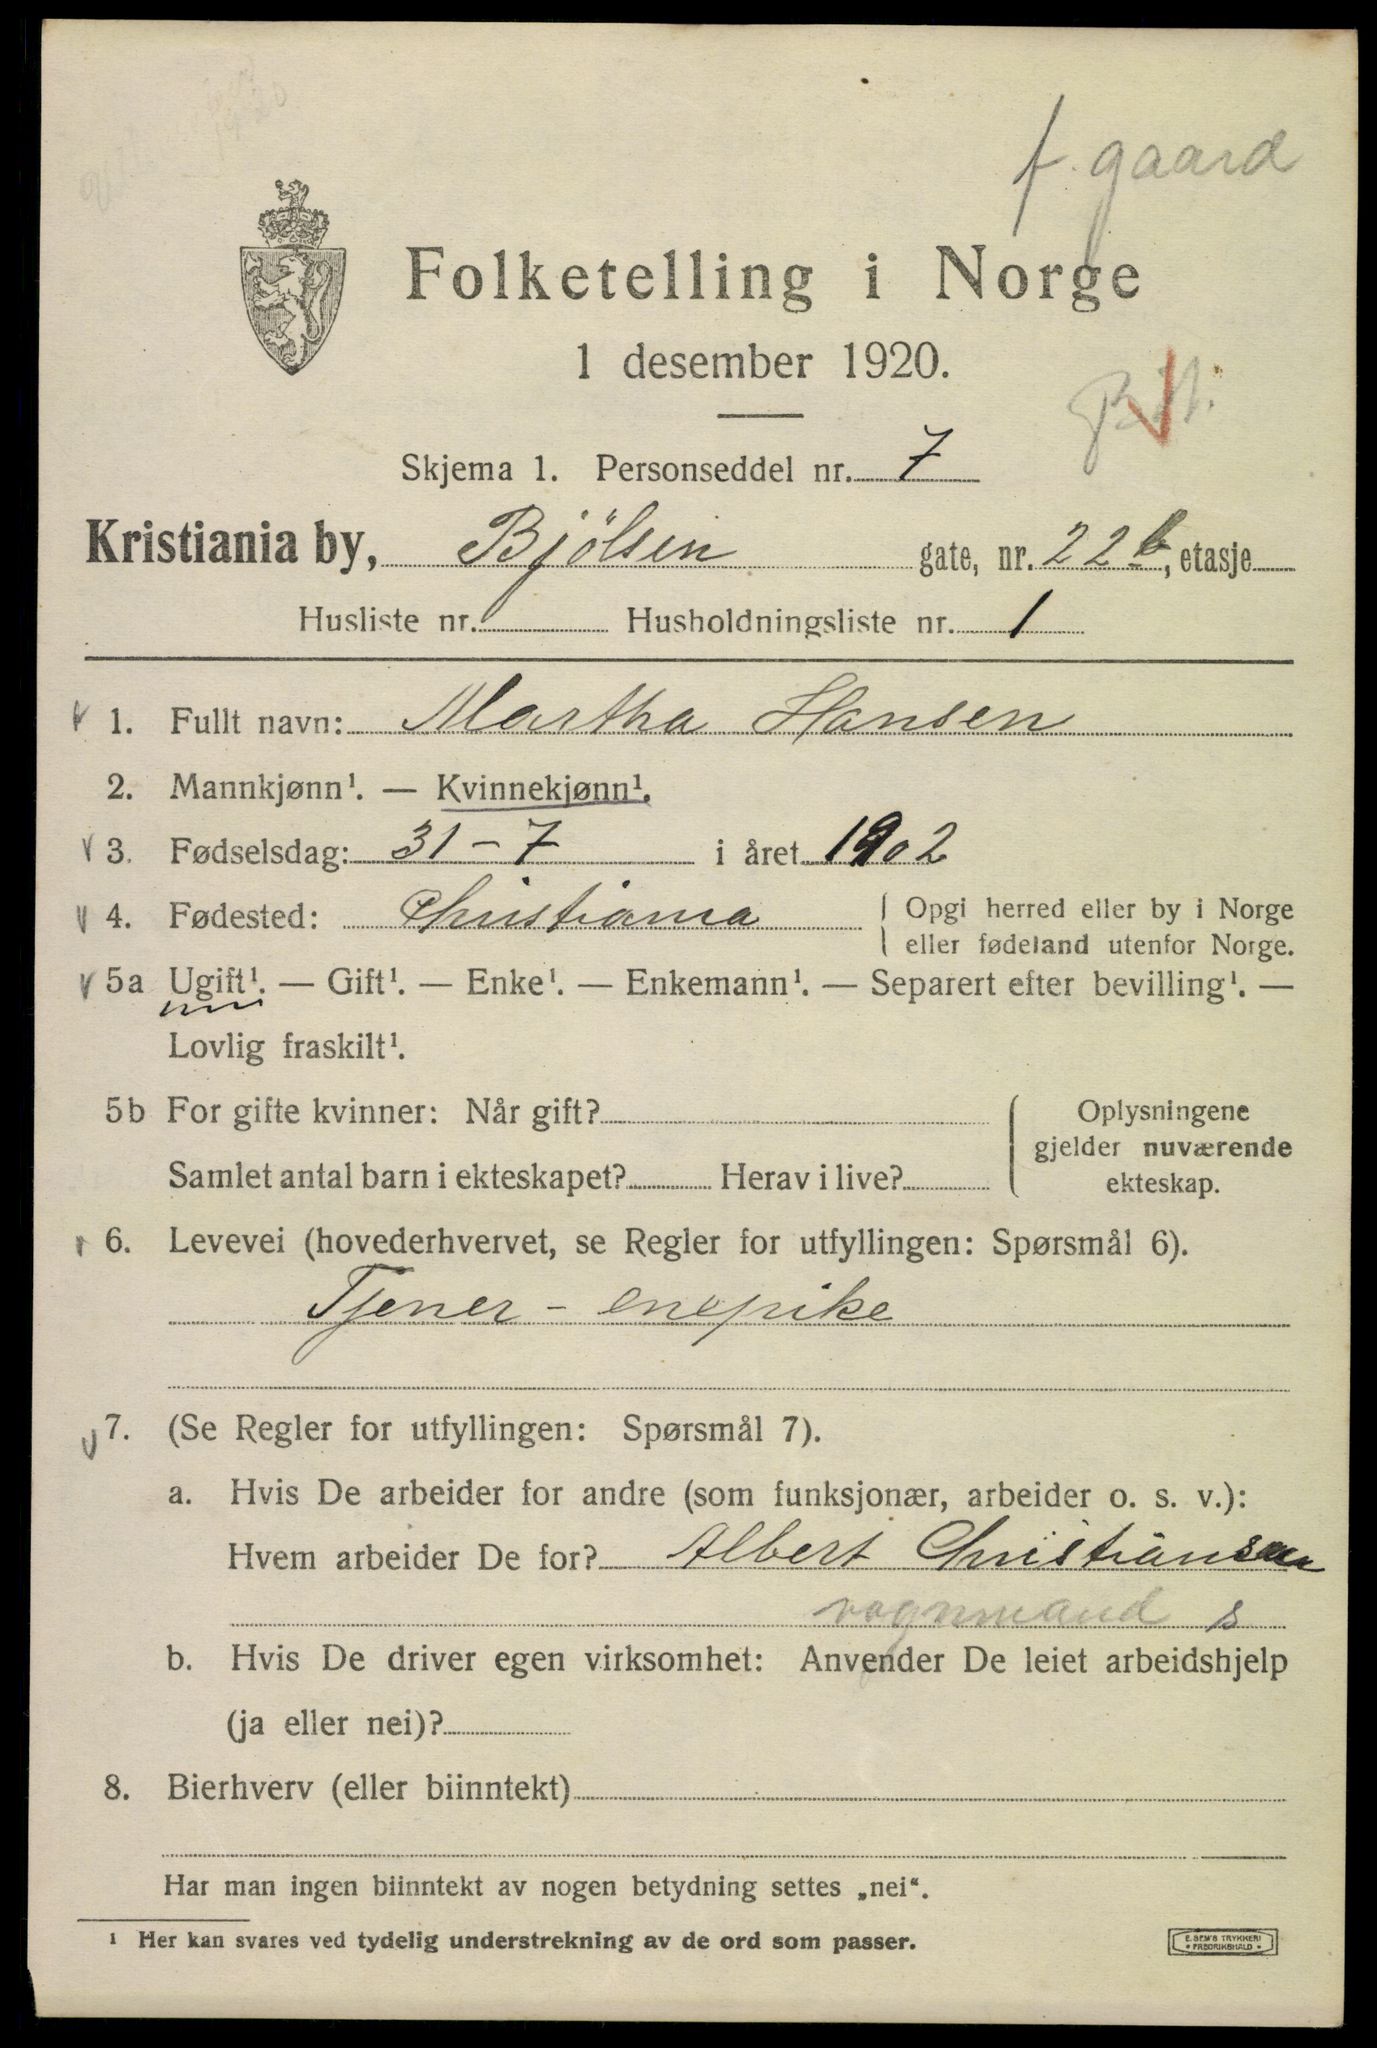 f. gaard
Folketelling i Norge
1 desember 1920.
Skjema 1. Personseddel nr. 7
Kristiania by, Bjölsen gate, nr. 22b, etasje
Husliste nr. Husholdningsliste nr. 1
1. Fullt navn: Martha Hansen
2. Mannkjønn¹. — Kvinnekjønn¹.
3. Fødselsdag: 31-7 i året 1902
4. Fødested: Christiania { Opgi herred eller by i Norge
eller fødeland utenfor Norge.
5a Ugift¹. — Gift¹. — Enke¹. — Enkemann¹. — Separert efter bevilling¹. —
Lovlig fraskilt¹.
5b For gifte kvinner: Når gift? { Oplysningene
gjelder nuværende
Samlet antal barn i ekteskapet? Herav i live? ekteskap.
6. Levevei (hovederhvervet, se Regler for utfyllingen: Spørsmål 6).
Tjener - enepike
7. (Se Regler for utfyllingen: Spørsmål 7).
a. Hvis De arbeider for andre (som funksjonær, arbeider o. s. v.):
Hvem arbeider De for? Albert Christiansen
vognmand s
b. Hvis De driver egen virksomhet: Anvender De leiet arbeidshjelp
(ja eller nei)?
8. Bierhverv (eller biinntekt)
Har man ingen biinntekt av nogen betydning settes „nei“.
¹ Her kan svares ved tydelig understrekning av de ord som passer.
E. SEM'S TRYKKERI
* FREDRIKSHALD *